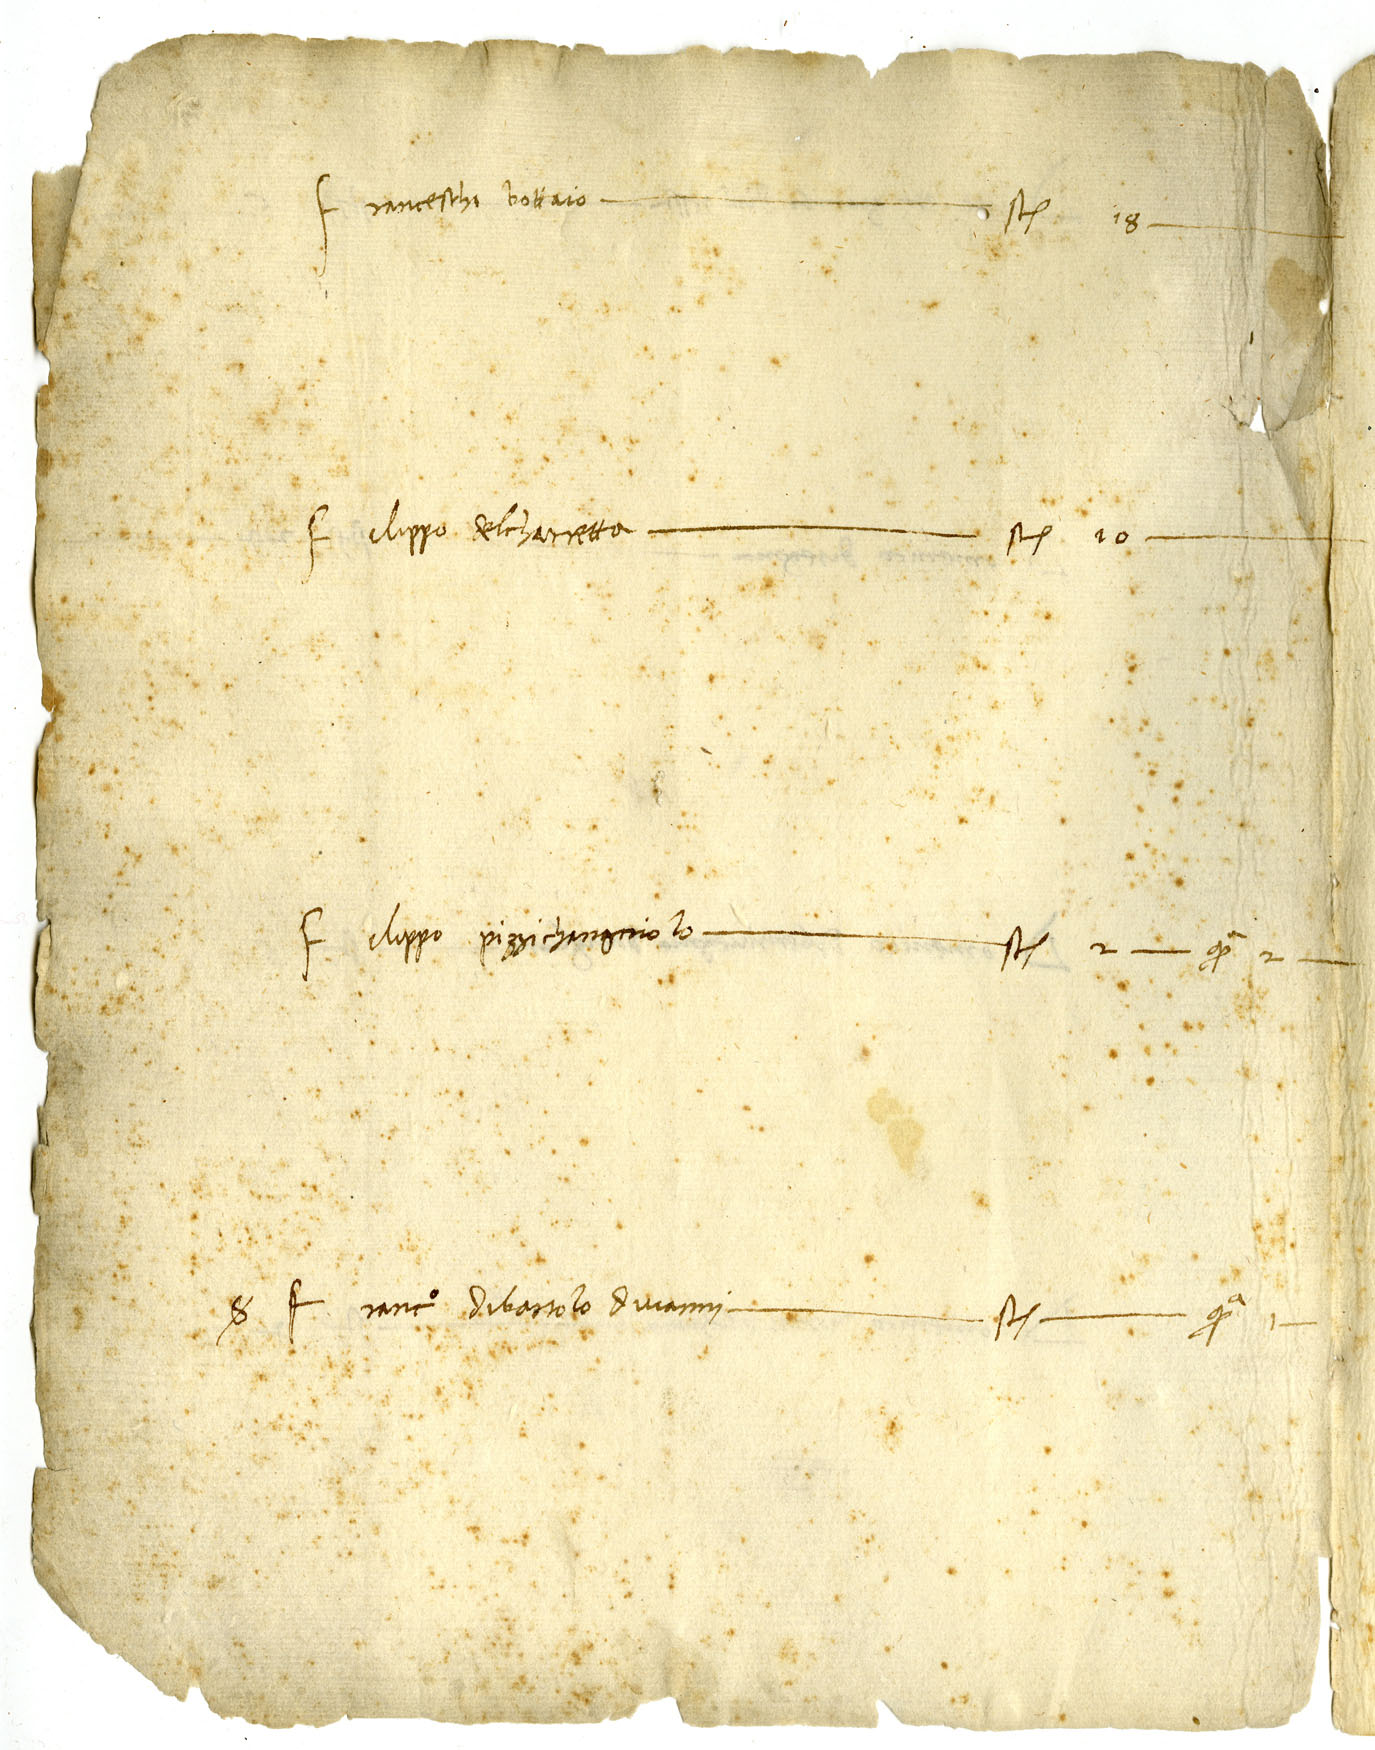 Francescho bottaio st 18
Filippo delcharretta st 10
Filippo pizzichangniolo st 2 qra 2
Franco dibartolo divanni st qra 1